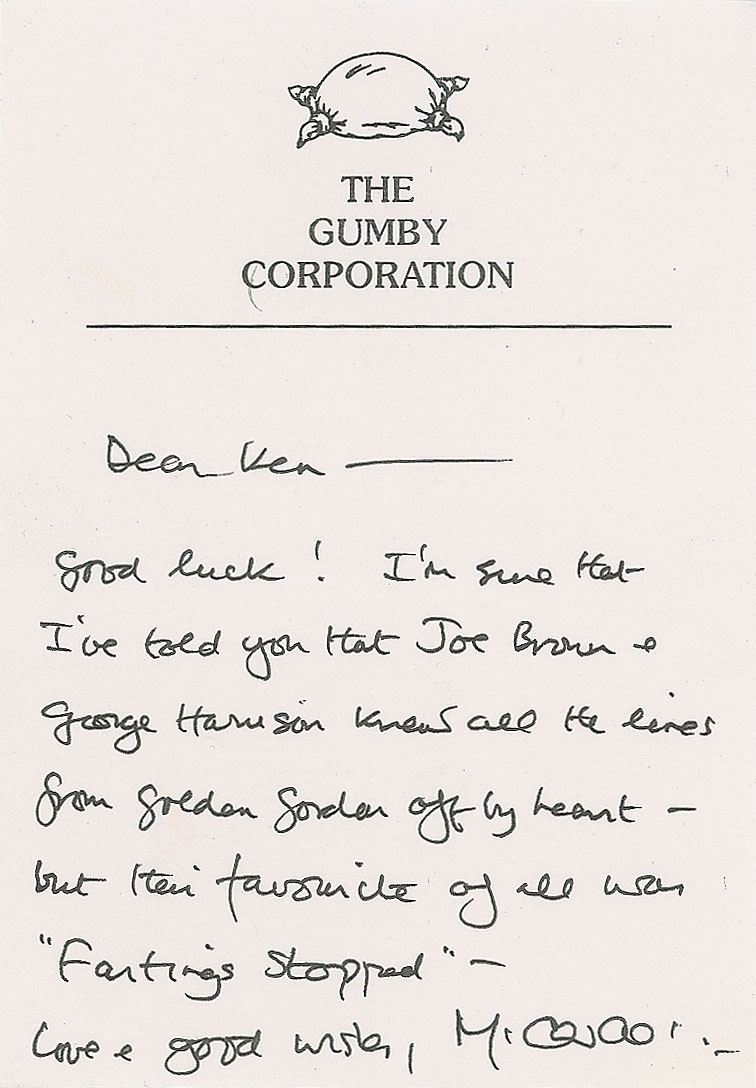 THE
GUMBY
CORPORATION
Dear Ken —
Good luck! I'm sure that
I've told you that Joe Brown &
George Harrison knew all the lines
from Golden Gordon off by heart –
but their favourite of all was
"Farting's Stopped" –
Love & good wishes,